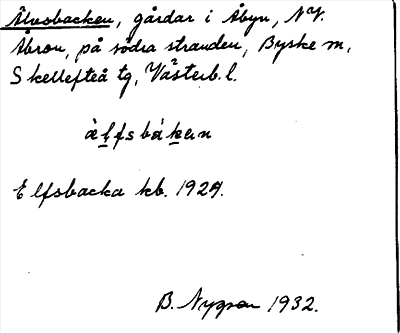 Älvsbacken, gårdar i Åbyn, NV.
Åbron, på södra stranden, Byske sn,
Skellefteå tg, Västerb. l.
ȧlfsbȧkɐn
Elfsbacka kb. 1924.
B. Nygren 1932.